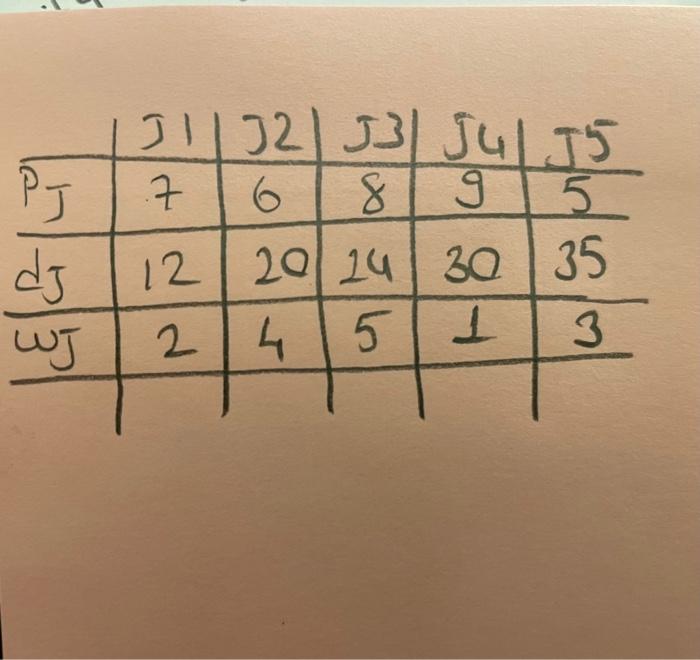 J1 J2 J3 J4 J5
PJ 7 6 8 9 5
dJ 12 20 14 30 35
wJ 2 4 5 1 3